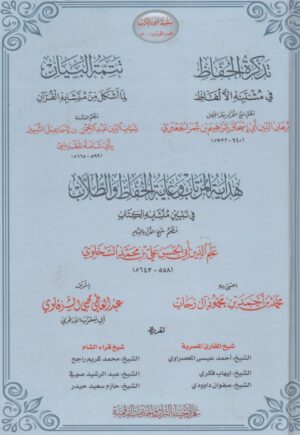 تذكرة الحفاظ
في مشتبه الألفاظ
برهان الدين أبي إسحاق إبراهيم بن عمر الجعبري
(٦٤٠-٧٣٢هـ)
تتمة البيان
لما أشكل من متشابه القرآن
شهاب الدين عبد الرحمن بن إسماعيل الشهير
بأبي شامة المقدسي
(٥٩٩-٦٦٥هـ)
هداية المرتاب وغاية الحفاظ والطلاب
في تبيين متشابه الكتاب
علم الدين أبي الحسن علي بن محمد السخاوي
(٥٥٨-٦٤٣هـ)
اعتنى به
محمد بن أحمد بن محمود آل رحاب
إشراف
عبد العاطي محيي الشرقاوي
تقريظ
شيخ المقارئ المصرية
الشيخ: أحمد عيسى المعصراوي
الشيخ: إيهاب فكري
الشيخ: صفوان داوودي
شيخ قراء الشام
الشيخ: محمد كريم راجح
الشيخ: عبد الرشيد صوفي
الشيخ: حازم سعيد حيدر